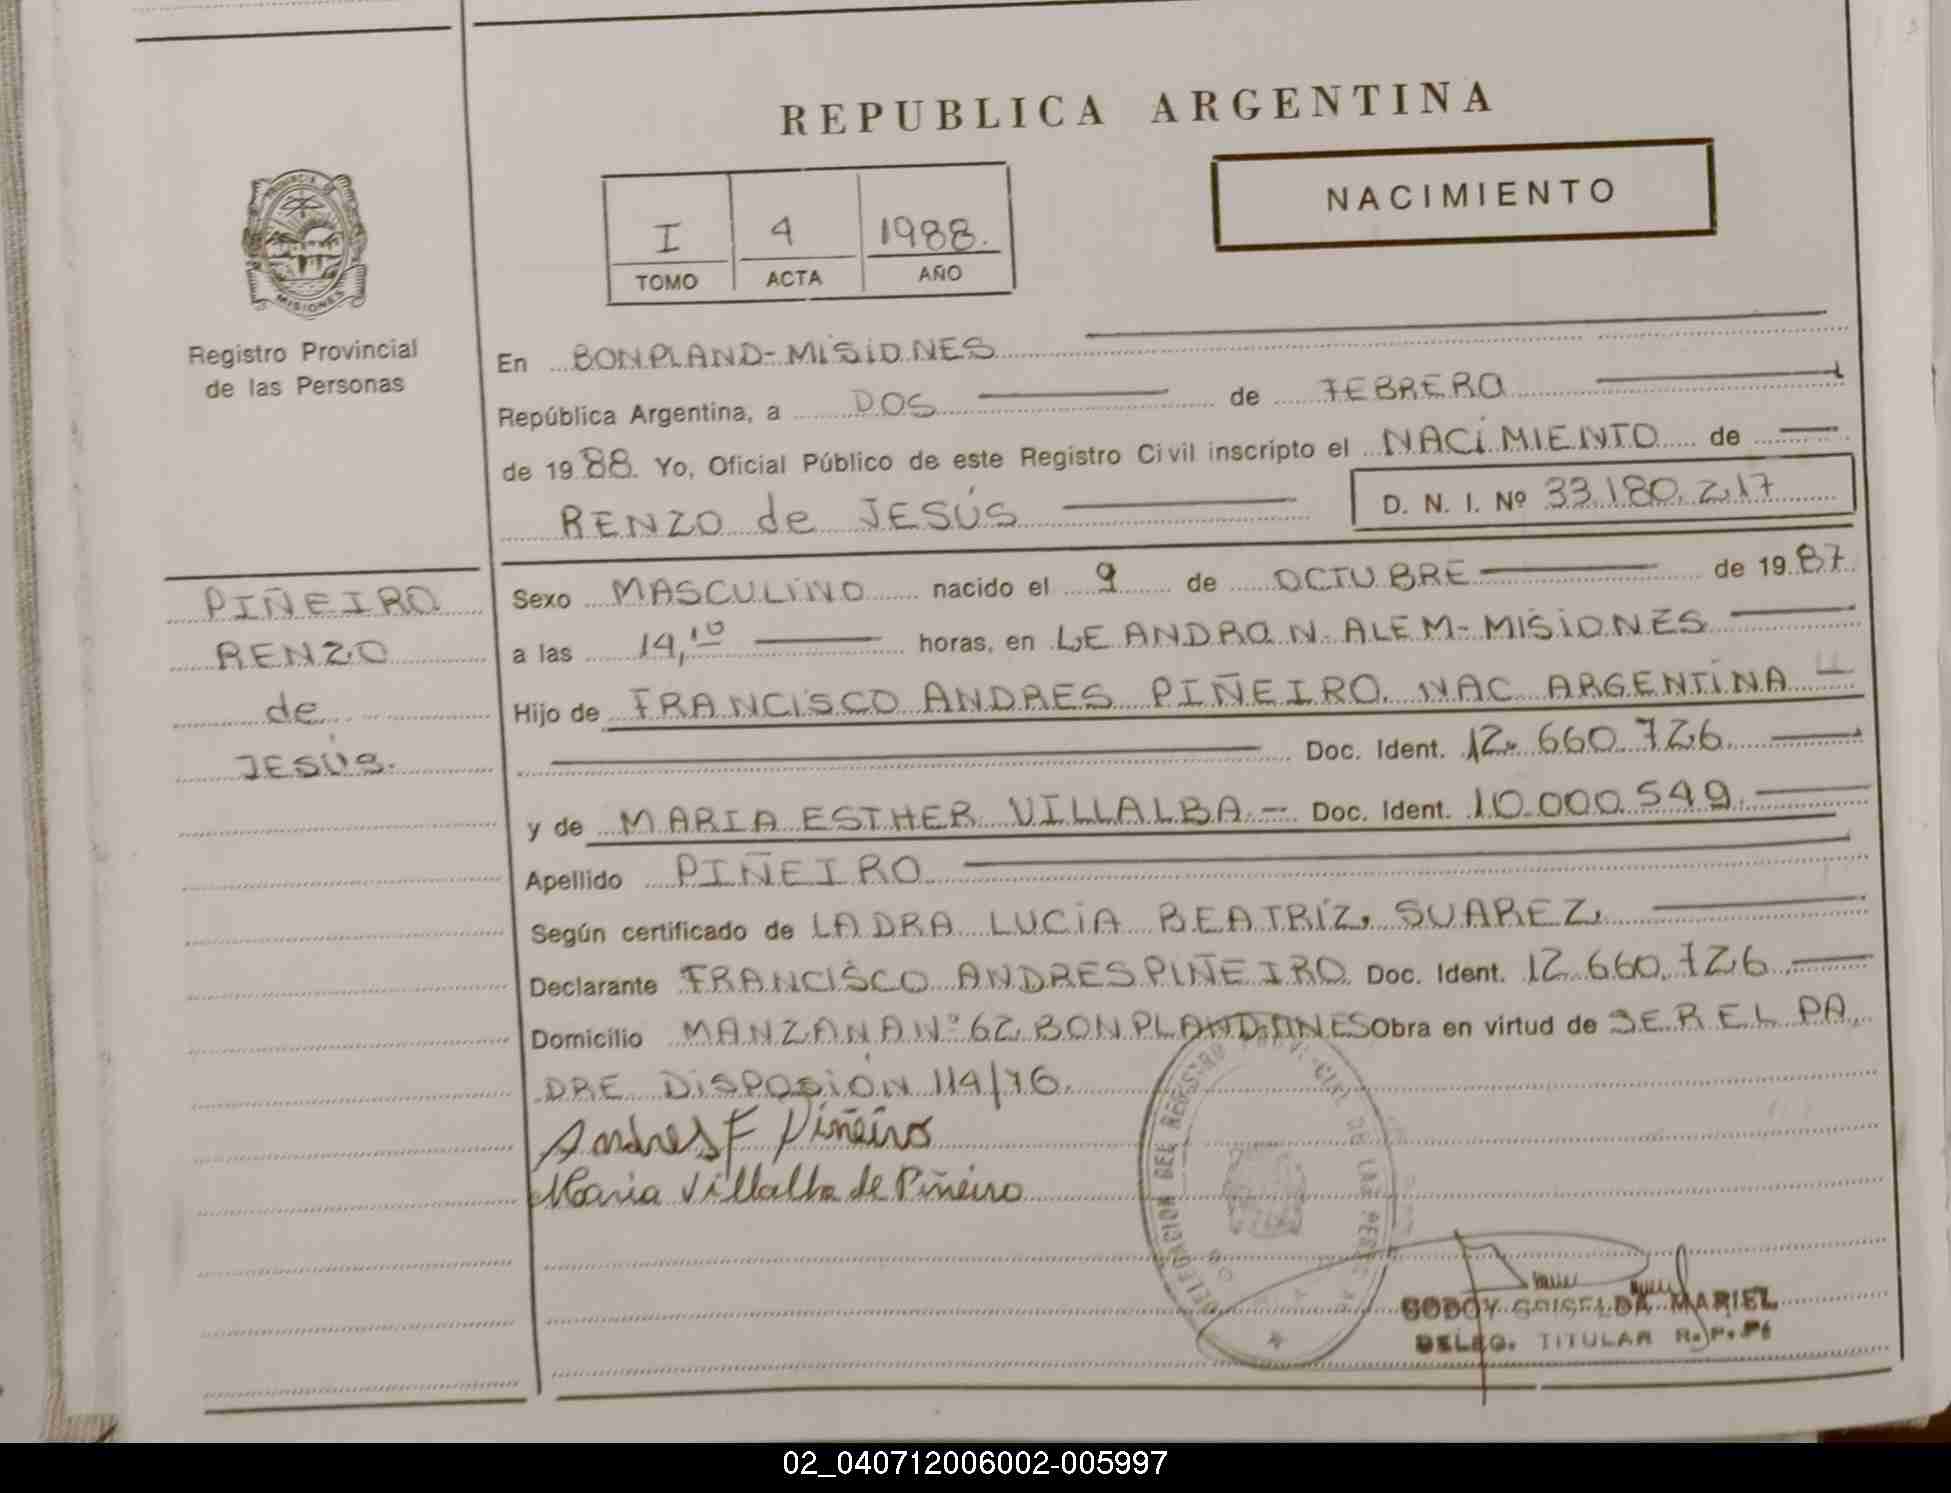 REPUBLICA ARGENTINA
NACIMIENTO
I 4 1988.
TOMO ACTA AÑO
PROVINCIA DE
MISIONES
Registro Provincial
de las Personas
En BONPLAND-MISIONES
República Argentina, a DOS de FEBRERO
de 1988. Yo, Oficial Público de este Registro Civil inscripto el NACIMIENTO de
RENZO de JESÚS D. N. I. Nº 33.180.217
PIÑEIRO
RENZO
de
JESÚS.
Sexo MASCULINO nacido el 9 de OCTUBRE de 1987
a las 14,10 horas, en LEANDRO N. ALEM-MISIONES
Hijo de FRANCISCO ANDRES PIÑEIRO. NAC ARGENTINA
Doc. Ident. 12.660.726
y de MARIA ESTHER VILLALBA - Doc. Ident. 10.000.549.
Apellido PIÑEIRO
Según certificado de LA DRA LUCIA BEATRIZ SUAREZ
Declarante FRANCISCO ANDRES PIÑEIRO. Doc. Ident. 12.660.726
Domicilio MANZANA Nº 62 BONPLAND Obra en virtud de SER EL PA
DRE DISPOSIÓN 114/76.
Andres F Piñeiro
Maria Villalba de Piñeiro
DELEGACION DEL REGISTRO PROVINCIAL DE LAS
GODOY GRISELDA MARIEL
DELEG. TITULAR R. P. P.
02_040712006002-005997